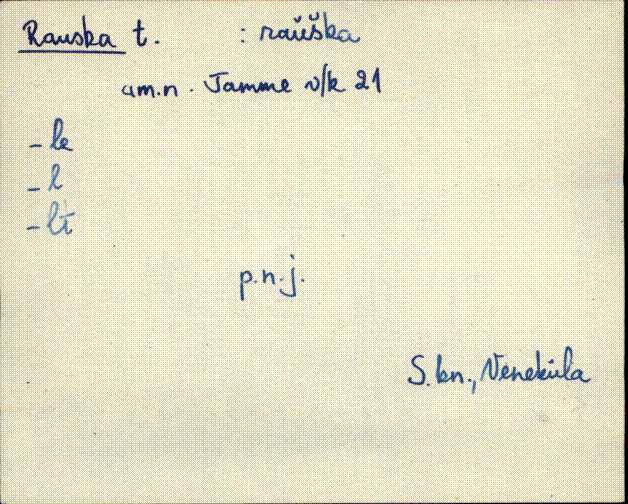 Rauska t. : raŭška
am.n. Jamme v/k 21
-le
-l
-lt
p.n.j.
S.kn., Veneküla